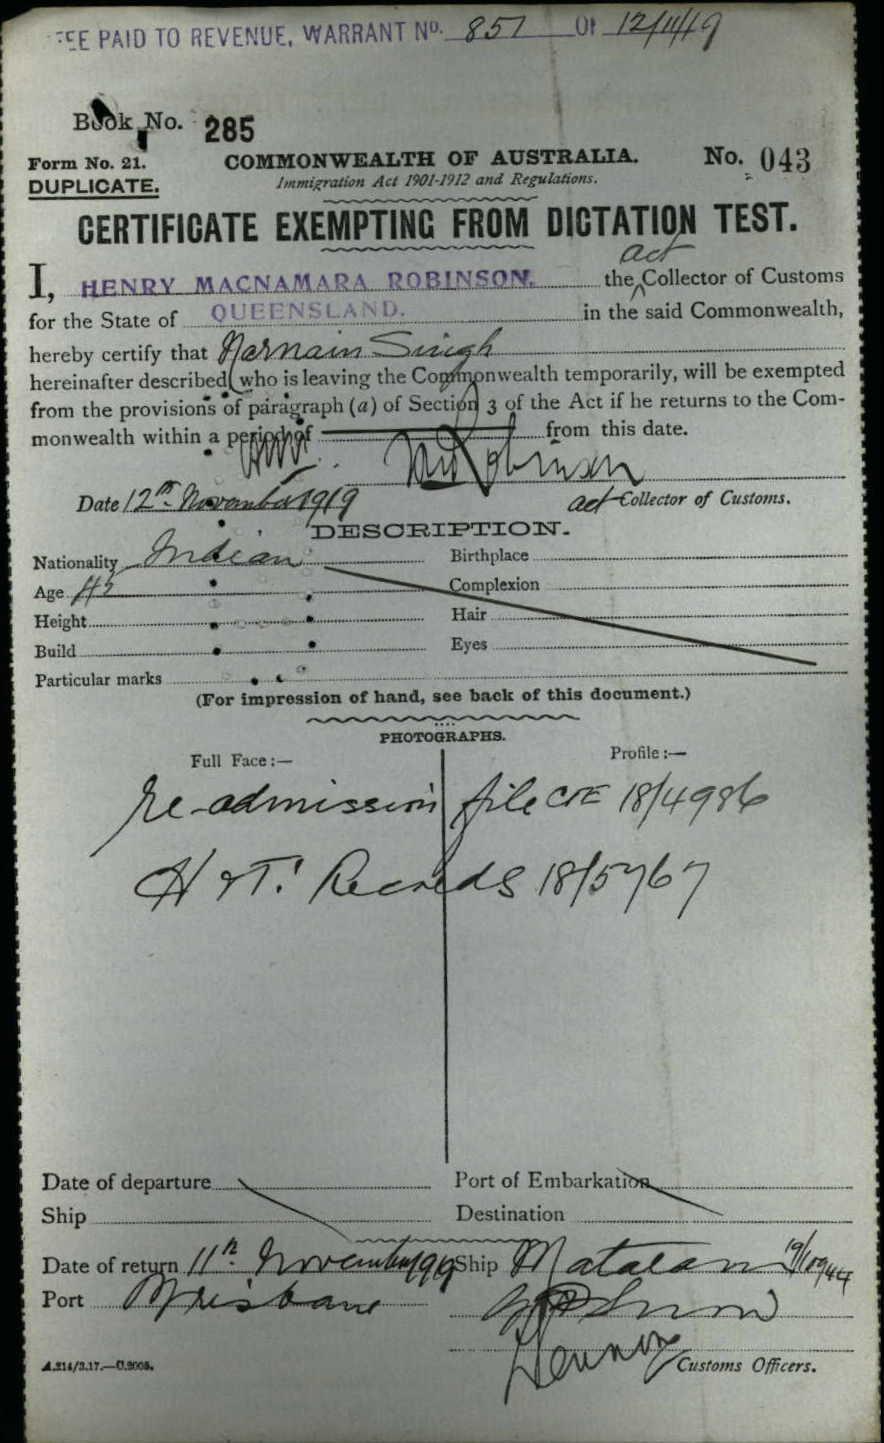 FEE PAID TO REVENUE, WARRANT No. 851 Of 12/11/19
Book No. 285
Form No. 21. COMMONWEALTH OF AUSTRALIA. No. 043
DUPLICATE. Immigration Act 1901-1912 and Regulations.
CERTIFICATE EXEMPTING FROM DICTATION TEST.
act
I, HENRY MACNAMARA ROBINSON. the Collector of Customs
for the State of QUEENSLAND. in the said Commonwealth,
hereby certify that Narnain Singh
hereinafter described, who is leaving the Commonwealth temporarily, will be exempted
from the provisions of paragraph (a) of Section 3 of the Act if he returns to the Com-
monwealth within a period of from this date.
Robinson
Date 12th November 1919 act Collector of Customs.
DESCRIPTION.
Nationality Indian Birthplace
Age 43 Complexion
Height Hair
Build Eyes
Particular marks
(For impression of hand, see back of this document.)
PHOTOGRAPHS.
Full Face:— Profile:—
Re-admission file 18/4986
H & T. Records 18/5767
Date of departure Port of Embarkation
Ship Destination
Date of return 11th November 1919 Ship Mataram
Port Brisbane
Customs Officers.
A.214/3.17.—C.2008.